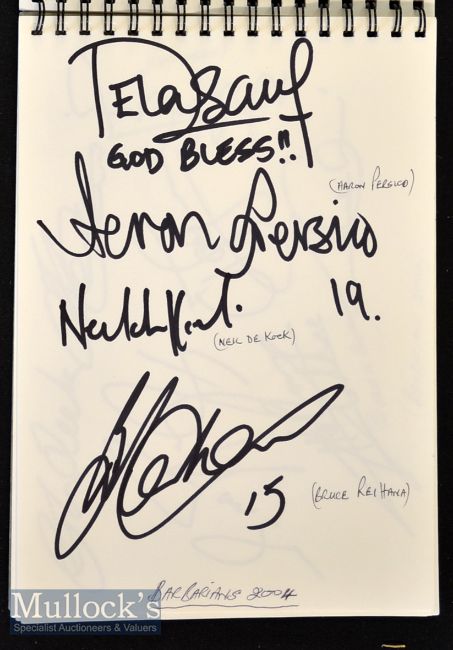 GOD BLESS!!
(AARON PERSICO)
Aeron Persico
19.
(NEIL DE KOCK)
15
(BRUCE REIHANA)
BARBARIANS 2004
Mullock's
Specialist Auctioneers & Valuers